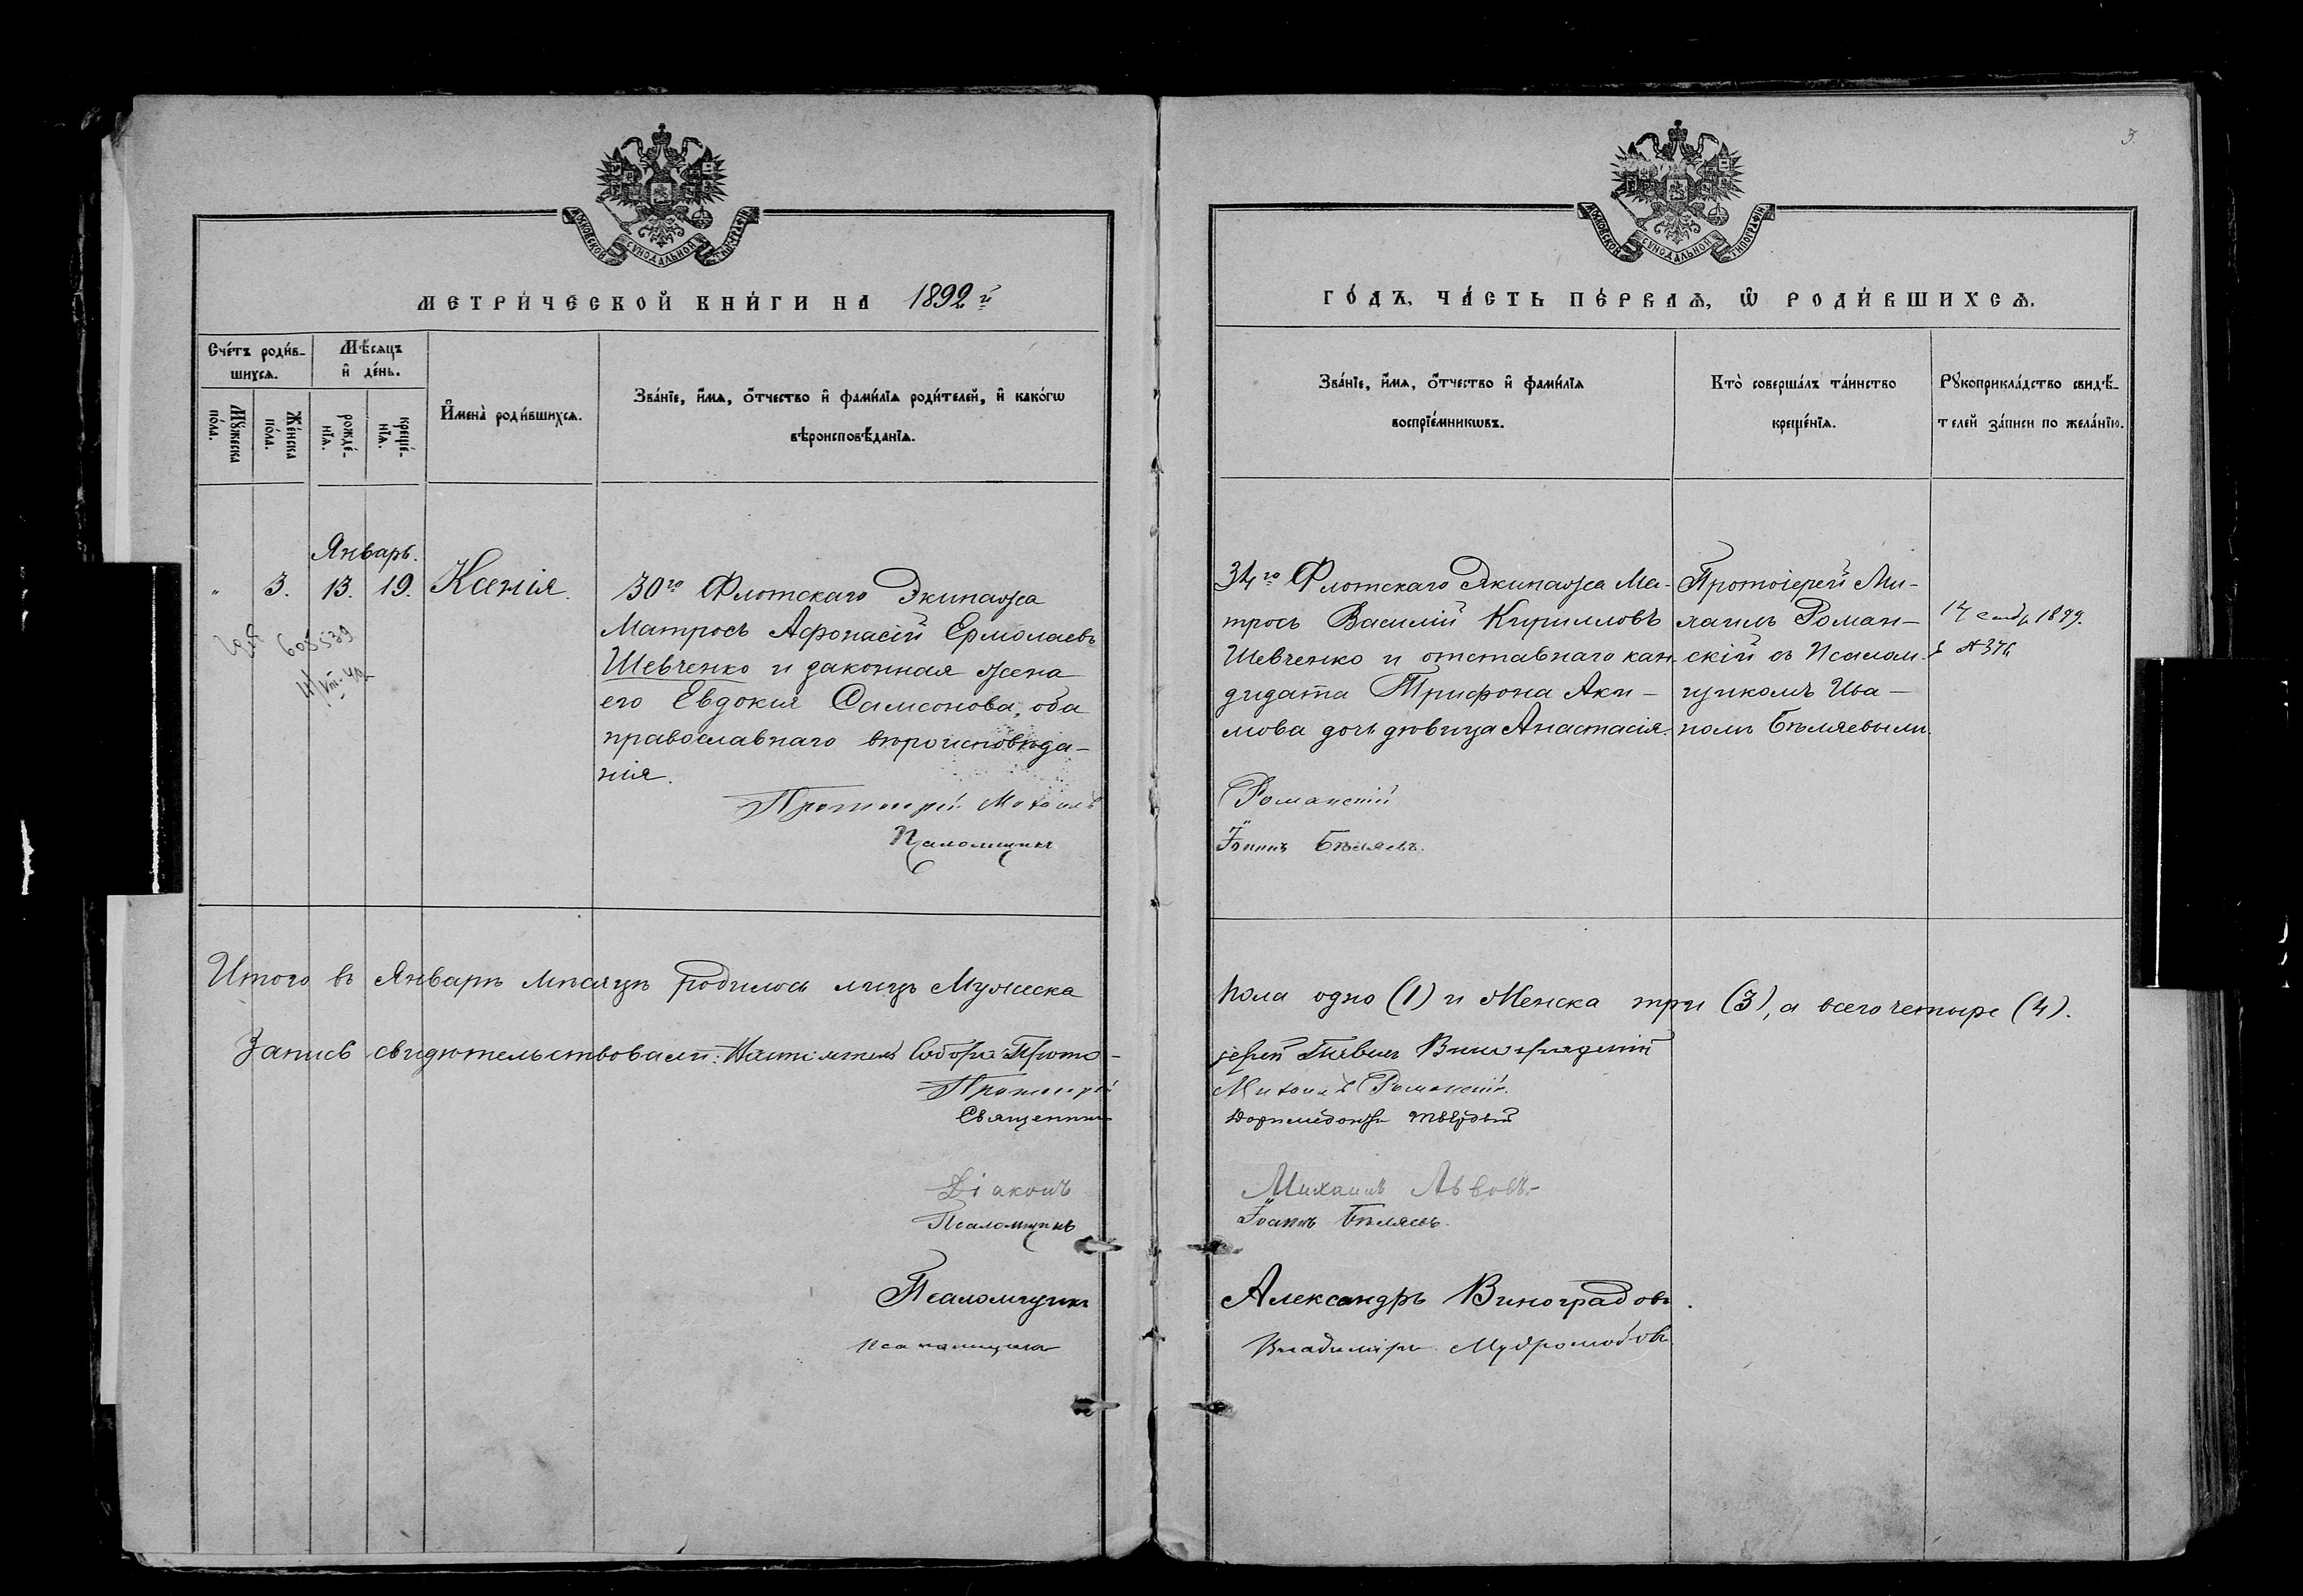 3
МОСКОВСКОЙ СѴНОДАЛЬНОЙ ТИПОГРАФІИ
МОСКОВСКОЙ СѴНОДАЛЬНОЙ ТИПОГРАФІИ
МЕТРИ́ЧЕСКОЙ КНИ́ГИ НА 1892 й
ГО́ДЪ, ЧА́СТЬ ПЕ́РВАѦ, Ѡ҆ РОДИ́ВШИХСѦ.
Сче́тъ роди́в-
шихсѧ.
Мꙋжеска по́ла.
Же́нска по́ла.
Мѣ́сяцъ
и҆ де́нь.
рожде́-
нїѧ.
креще́-
нїѧ.
И҆мена̀ роди́вшихсѧ.
Зва́нїе, и҆́мѧ, ѻ҆́тчество и҆ фами́лїѧ роди́телей, и҆ како́гѡ
вѣроисповѣ́данїѧ.
Зва́нїе, и҆́мѧ, ѻ҆́тчество и҆ фами́лїѧ
воспрїе́мникѡвъ.
Кто̀ соверша́лъ та́инство
креще́нїѧ.
Рꙋкоприкла́дство свидѣ́-
телей за́писи по жела́нїю.
Январь.
" 3. 13. 19. Ксенія.
30го Флотскаго Экипажа
Матросъ Афонасій Ермолаевъ
Шевченко и законная жена
его Евдокия Самсонова, оба
православнаго вѣроисповѣда-
нія.
Протоіерей Михаилъ
Псаломщикъ
605539
34го Флотскаго Экипажа Ма-
тросъ Василий Кирилловъ
Шевченко и отставнаго кан-
дидата Трифона Аки-
мова дочь дѣвица Анастасія.
Романскій
Іоаннъ Бѣляевъ.
Протоіерей Ми-
хаилъ Роман-
скій съ Псалом-
щикомъ Ива-
номъ Бѣляевымъ.
17 1899.
№ 376
Итого въ Январѣ мѣсяцѣ родилось лицъ Мужеска
пола одно (1) и Женска три (3), а всего четыре (4).
Запись свидѣтельствовали: Настоятель Собора Прото-
іерей Павелъ Виноградскій
Протоіерей
Михаилъ Романскій.
Священникъ
Дормедонтъ Твердый
Діаконъ
Михаилъ Львовъ
Псаломщикъ
Іоаннъ Бѣляевъ.
Псаломщикъ
Александръ Виноградовъ.
Псаломщикъ
Владиміръ Мудролюбовъ